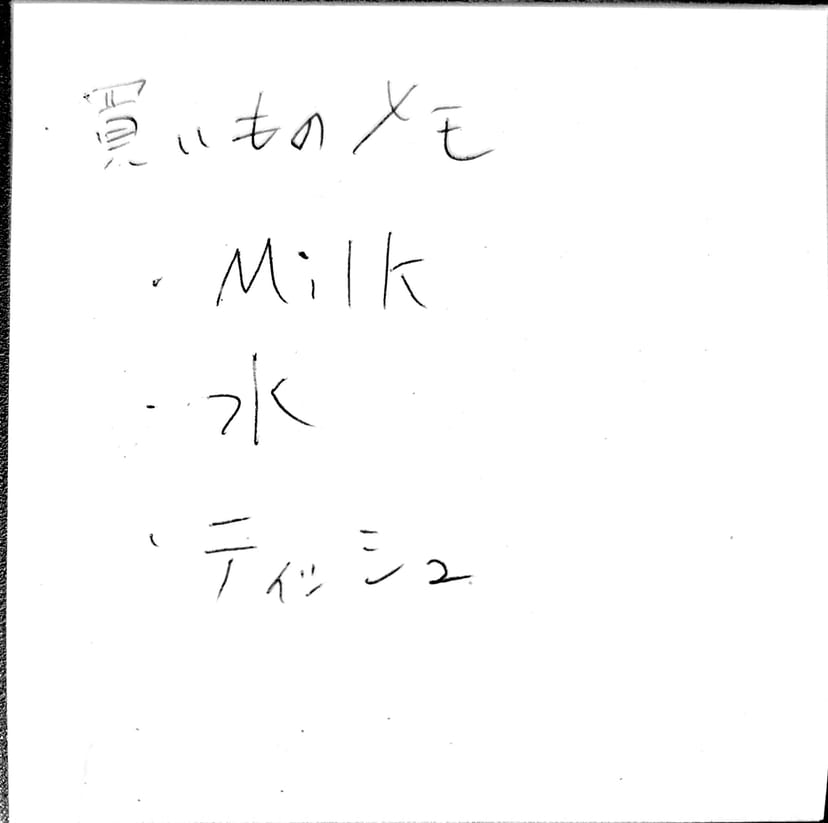 買いものメモ
・Milk
・水
・ティッシュ